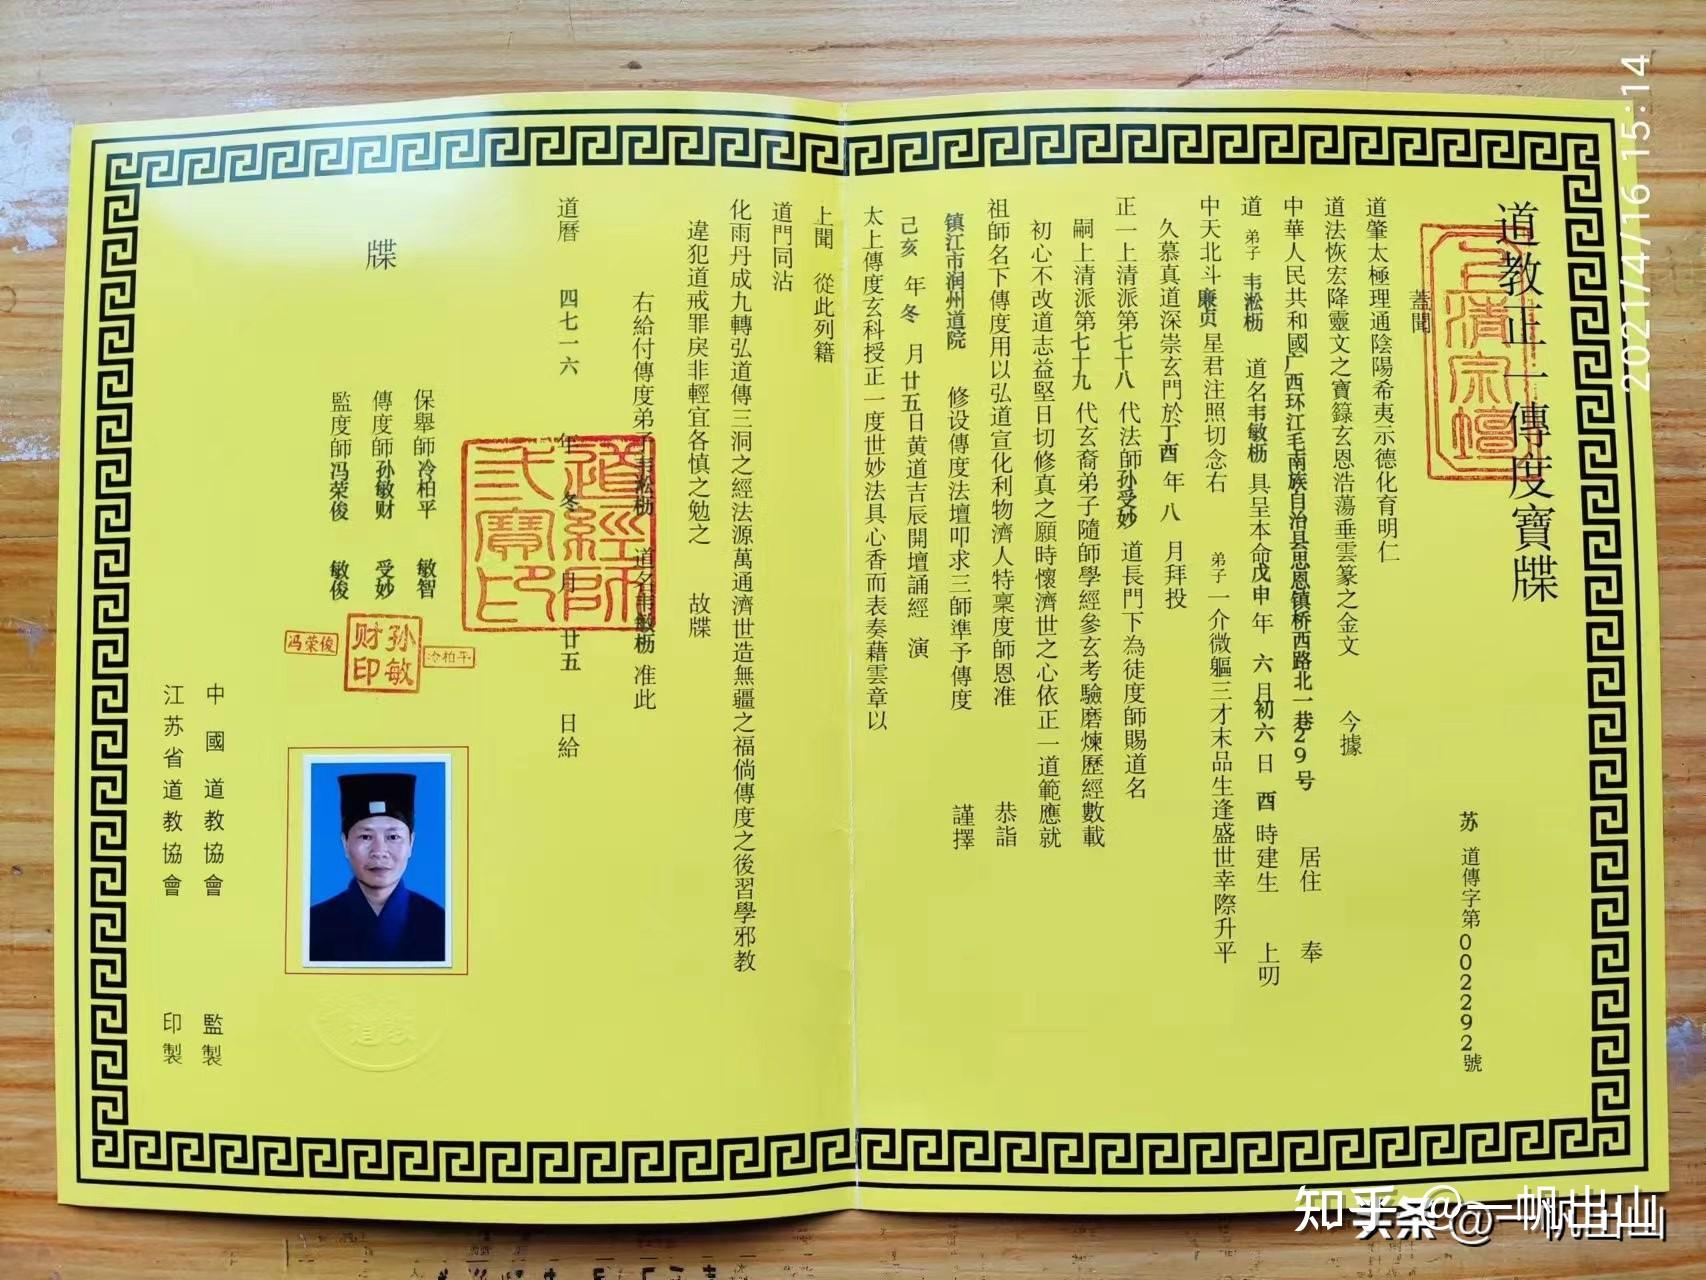 道教正一傳度寶牒
上清宗壇
苏 道傳字第002292號
蓋聞
道肇太極理通陰陽希夷示德化育明仁
道法恢宏降靈文之寶籙玄恩浩蕩垂雲篆之金文 今據
中華人民共和國广西环江毛南族自治县思恩镇桥西路北一巷29号 居住 奉
道 弟子 韦淞枥 道名韦敏枥 具呈本命戊申年 六月初六日 酉 時建生 上叨
中天北斗廉贞 星君注照切念右 弟子一介微軀三才末品生逢盛世幸際升平
久慕真道深崇玄門於丁酉 年 八 月拜投
正一上清派第七十八 代法師孙受妙 道長門下為徒度師賜道名
嗣上清派第七十九 代玄裔弟子隨師學經參玄考驗磨煉歷經數載
初心不改道志益堅日切修真之願時懷濟世之心依正一道範應就
祖師名下傳度用以弘道宣化利物濟人特稟度師恩准 恭詣
镇江市润州道院 修设傳度法壇叩求三師準予傳度 謹擇
己亥 年冬 月廿五日黄道吉辰開壇誦經 演
太上傳度玄科授正一度世妙法具心香而表奏藉雲章以
上聞 從此列籍
道門同沾
化雨丹成九轉弘道傳三洞之經法源萬通濟世造無疆之福倘傳度之後習學邪教
違犯道戒罪戾非輕宜各慎之勉之 故牒
右給付傳度弟子韦淞枥 道名韦敏枥 准此
道曆 四七一六 年 冬 月 廿五 日給
道經師寶印
牒
保舉師冷柏平 敏智
傳度師孙敏财 受妙
監度師冯荣俊 敏俊
冷柏平
孙敏财印
冯荣俊
中國道教協會 監製
江苏省道教協會 印製
2021/4/16 15:14
知乎 @一帆出山
头条 @一帆出山